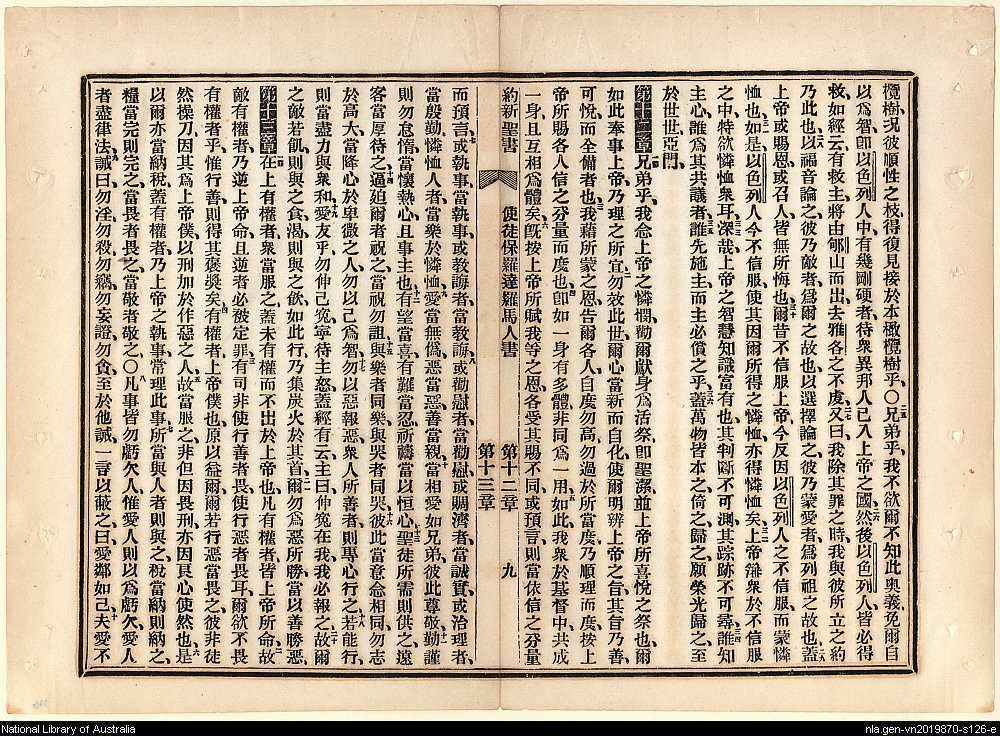 欖樹、况彼順性之枝、得復見接於本橄欖樹乎、〇兄弟乎、我不欲爾不知此奥義、免爾自
以爲智、卽以色列人中、有幾剛硬者、待衆異邦人已入上帝之國、然後以色列人皆必得
救、如經云、有救主將由郇山而出、去雅各之不虔、又曰、我除其罪之時、我與彼所立之約
乃此也、以福音論之、彼乃敵者、爲爾之故也、以選擇論之、彼乃蒙愛者、爲列祖之故也、蓋
上帝或賜恩、或召人、皆無所悔也、爾昔不信服上帝、今反因以色列人之不信服、而蒙憐
恤也、如是以色列人今不信服、使其因爾所得之憐恤、亦得憐恤矣、上帝錮衆於不信服
之中、特欲憐恤衆耳、深哉、上帝之智慧知識富有也、其判斷不可測、其踪跡不可尋、誰知
主心、誰爲其共議者、誰先施主、而主必償之乎、蓋萬物皆本之、倚之、歸之、願榮光歸之、至
於世世、亞門、
第十二章 兄弟乎、我念上帝之憐憫、勸爾獻身爲活祭、卽聖潔直上帝所喜悅之祭也、爾
如此奉事上帝、乃理之所宜、勿效此世、爾心當新而自化、使爾明辨上帝之旨、其旨乃善、
可悅、而全備者也、我藉所蒙之恩告爾各人、自度勿高、勿過於所當度、乃順理而度、按上
帝所賜各人信之分量而度也、卽如一身有多體、非同爲一用、如此我衆於基督中、共成
一身、且互相爲體矣、旣按上帝所賦我等之恩、各受其賜不同、或預言、則當依信之分量
約新聖書 使徒保羅達羅馬人書 第十二章 第十三章 九
而預言、或執事、當執事、或敎誨者、當敎誨、或勸慰者、當勸慰、或賙濟者、當誠實、或治理者、
當殷勤、憐恤人者、當樂於憐恤、愛當無僞、惡當惡、善當親、當相愛如兄弟、彼此尊敬、勤謹
則勿怠惰、當懷熱心、且事主也、有望當喜、有難當忍、祈禱當以恒心、聖徒所需則供之、遠
客當厚待之、逼迫爾者祝之、當祝勿詛、與樂者同樂、與哭者同哭、彼此當意念相同、勿志
於高大、當降心於卑微之人、勿以己爲智、勿以惡報惡、衆人所善者、則專心行之、若能行、
則當盡力與衆和、愛友乎、勿伸己寃、寧待主怒、蓋經有云、主曰、伸寃在我、我必報之、故爾
之敵若飢、則與之食、渴則與之飲、如此行、乃集炭火於其首、爾勿爲惡所勝、當以善勝惡、
第十三章 在上有權者、衆當服之、蓋未有權而不出於上帝也、凡有權者、皆上帝所命、故
敵有權者、乃逆上帝命、且逆者必被定罪、有司非使行善者畏、使行惡者畏耳、爾欲不畏
有權者乎、惟行善、則得其褒奬矣、有權者、上帝僕也、原以益爾、爾若行惡、當畏之、彼非徒
然操刀、因其爲上帝僕、以刑加於作惡之人、故當服之、非但因畏刑、亦因艮心使然也、是
以爾亦當納稅、蓋有權者、乃上帝之執事、常理此事、所當與人者則與之、稅當納則納之、
糧當完則完之、當畏者畏之、當敬者敬之、〇凡事皆勿虧欠人、惟愛人則以爲虧欠、愛人
者盡律法、誡曰、勿淫、勿殺、勿竊、勿妄證、勿貪、至於他誡、一言以蔽之曰、愛鄰如己、夫愛不
National Library of Australia
nla.gen-vn2019870-s126-e